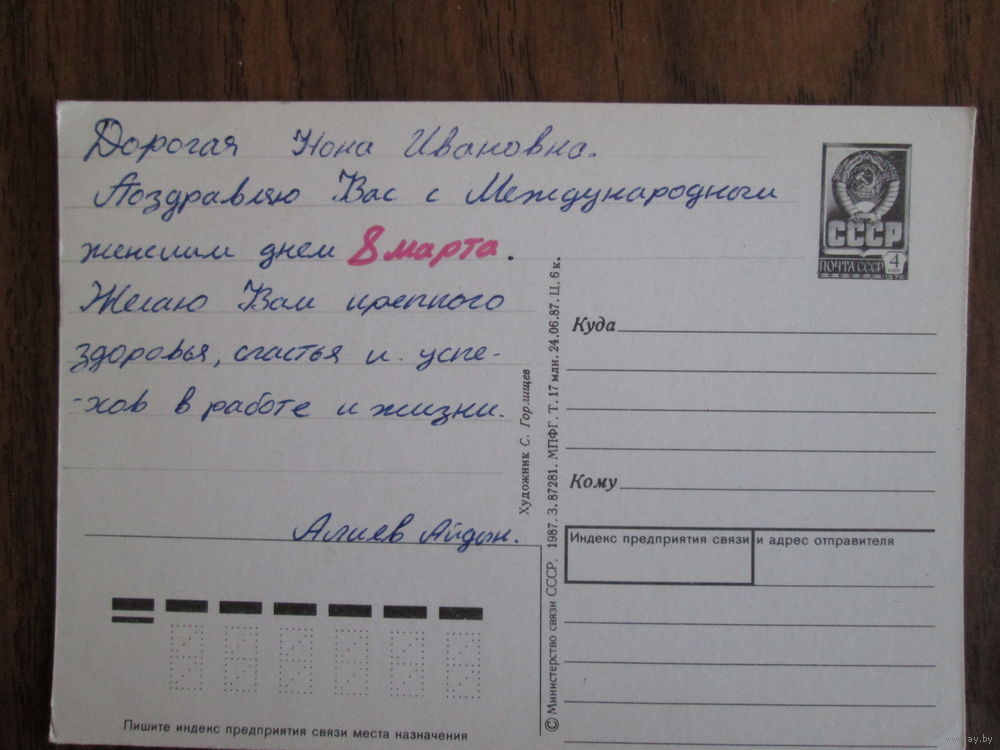 Дорогая Нона Ивановна.
Поздравляю Вас с Международным
женским днем 8 марта.
Желаю Вам крепкого
здоровья, счастья и успе-
-хов в работе и жизни.
Алиев Айдын.
Пишите индекс предприятия связи места назначения
Художник С. Горлищев
© Министерство связи СССР. 1987. З. 87281. МПФГ. Т. 17 млн. 24.06.87. Ц. 6 к.
СССР
ПОЧТА СССР 4
КОП
1976
Куда
Кому
Индекс предприятия связи и адрес отправителя